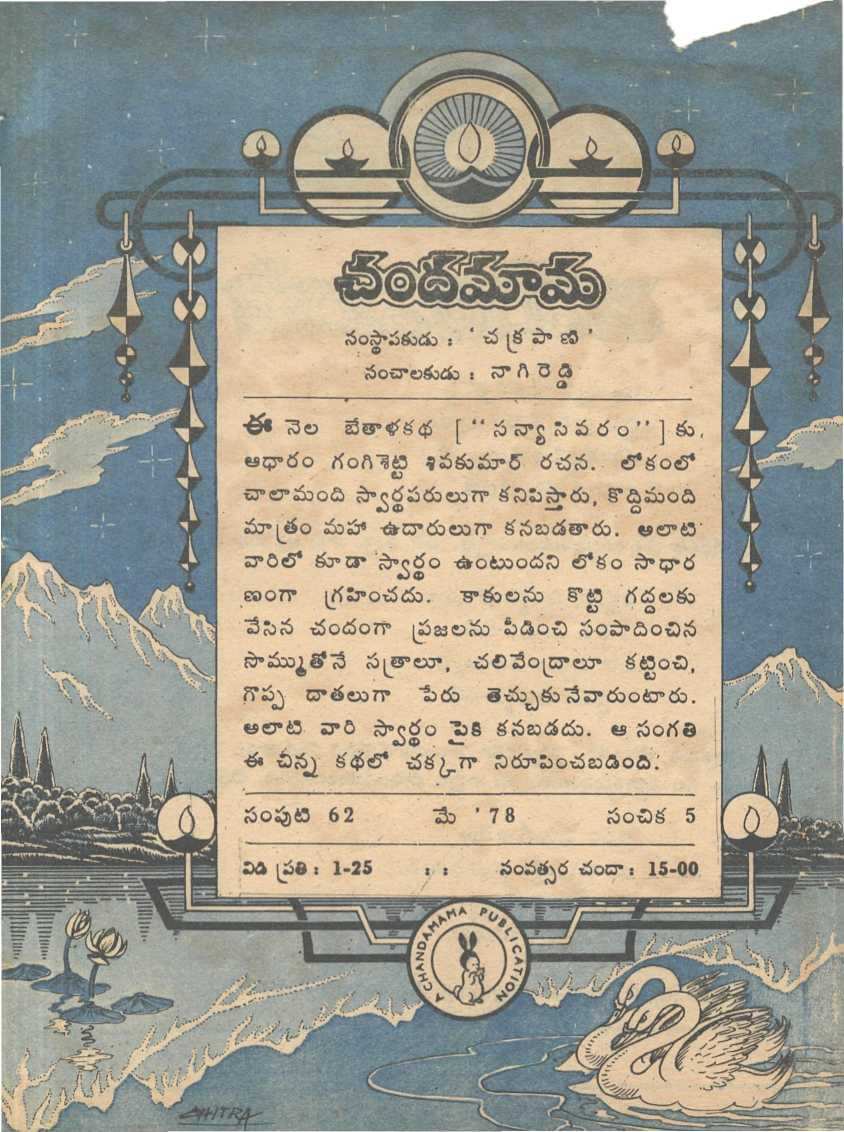 చందమామ
సంస్థాపకుడు : ' చక్రపాణి '
సంచాలకుడు : నాగిరెడ్డి
ఈ నెల బేతాళకథ [ "సన్యాసివరం" ] కు,
ఆధారం గంగిశెట్టి శివకుమార్ రచన. లోకంలో
చాలామంది స్వార్థపరులుగా కనిపిస్తారు, కొద్దిమంది
మాత్రం మహా ఉదారులుగా కనబడతారు. అలాటి
వారిలో కూడా స్వార్థం ఉంటుందని లోకం సాధార
ణంగా గ్రహించదు. కాకులను కొట్టి గద్దలకు
వేసిన చందంగా ప్రజలను పీడించి సంపాదించిన
సొమ్ముతోనే సత్రాలూ, చలివేంద్రాలూ కట్టించి,
గొప్ప దాతలుగా పేరు తెచ్చుకునేవారుంటారు.
అలాటి వారి స్వార్థం పైకి కనబడదు. ఆ సంగతి
ఈ చిన్న కథలో చక్కగా నిరూపించబడింది.
సంపుటి 62 మే '78 సంచిక 5
విడి ప్రతి : 1-25 : : సంవత్సర చందా : 15-00
A CHANDAMAMA PUBLICATION
CHITRA